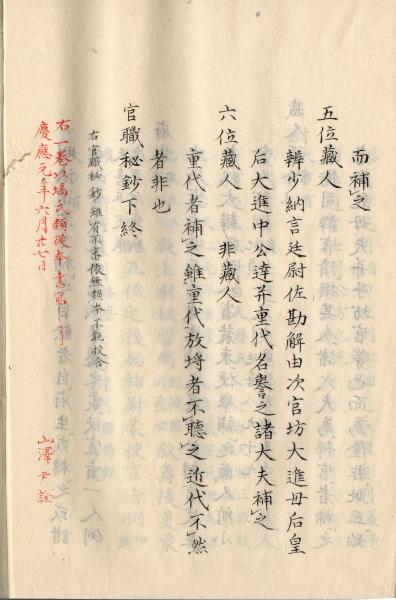 而補之
五位藏人
辨少納言廷尉佐勘解由次官坊大進母后皇
后大進中公達并重代名譽之諸大夫補之
六位藏人 非藏人
重代者補之雖重代放埓者不聽之近代不然
者非也
官職秘鈔下終
右官職秘鈔雖有不審依無類本不能校合
右一卷以塙氏類從本書寫了
慶應元年六月廿七日
山澤尹詮